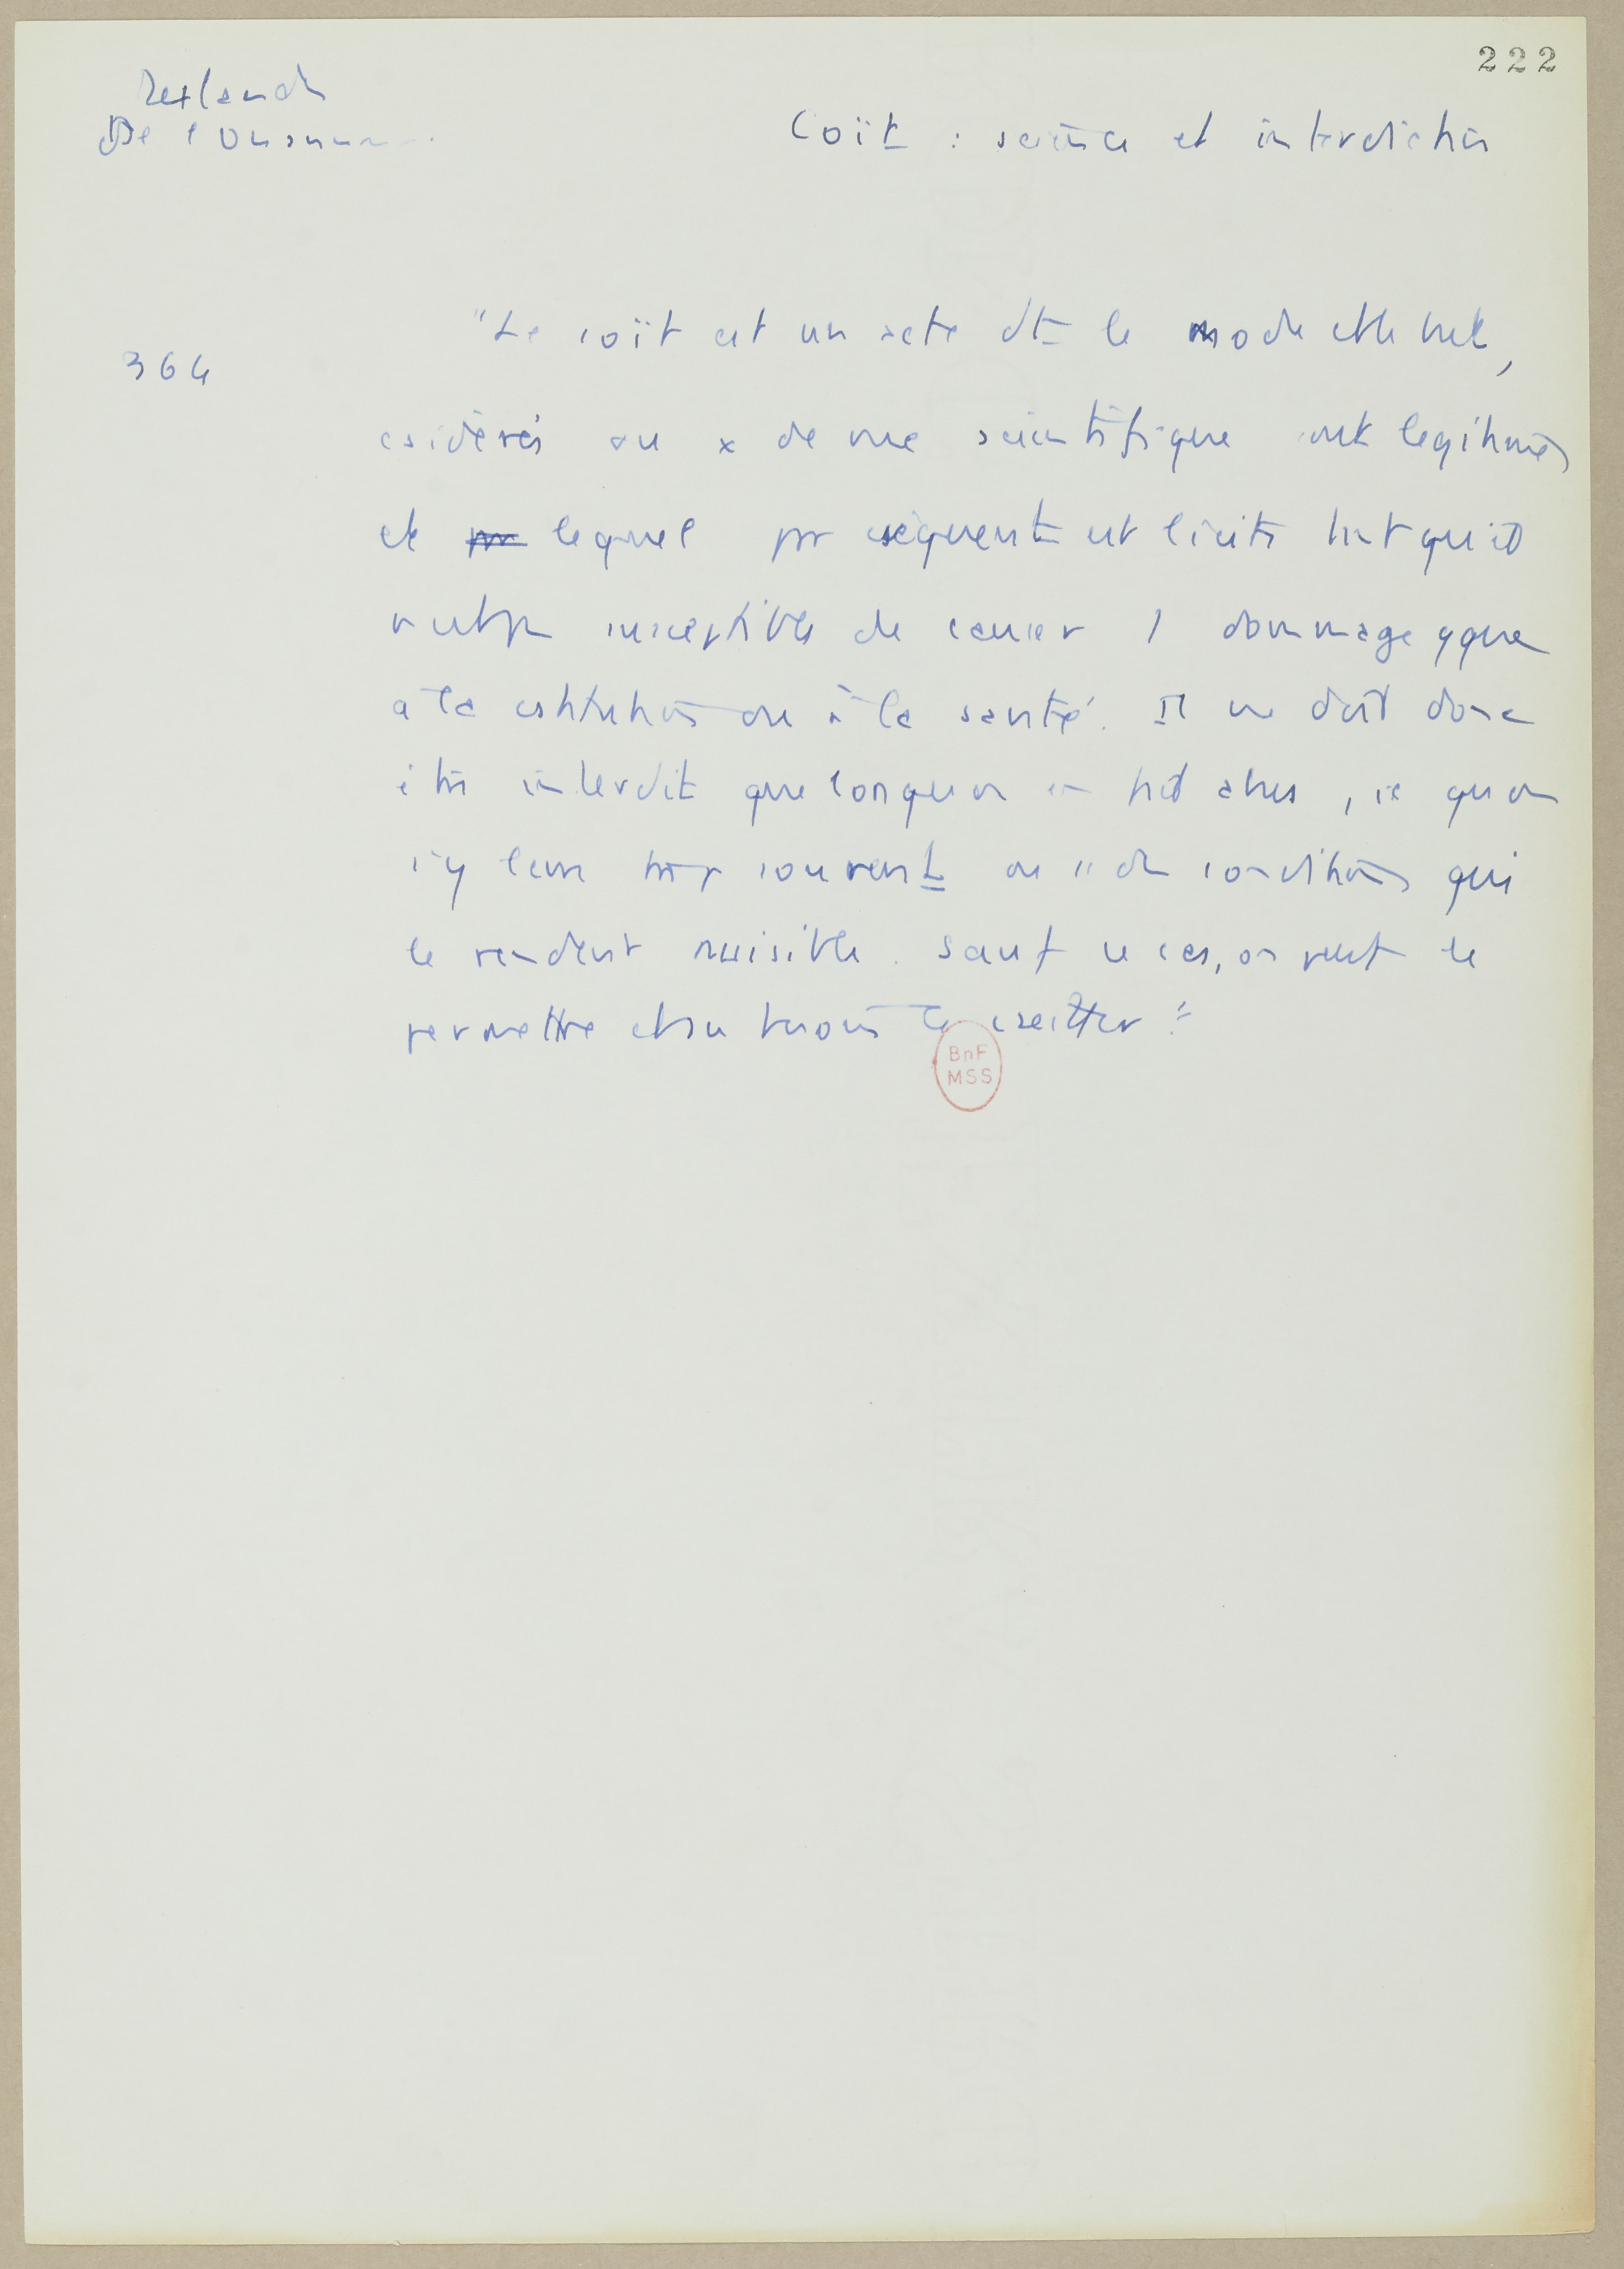 222
Deslandes
De l'onanisme
Coït : science et interdiction
364
"Le coït est un acte dt le mode et le but,
csidérés au x de vue scientifique sont legitimes
et lequel pr cséquent est licite tant qu'il
n'est pas susceptible de causer 1 dommage qque
à la cstitution ou à la santé. Il ne doit donc
être interdit que lorsqu'on en fait abus, ie qu'on
s'y livre trop souvent ou ds des conditions qui
le rendent nuisible. Sauf ce cas, on peut le
permettre et même le cseiller."
BnF
MSS